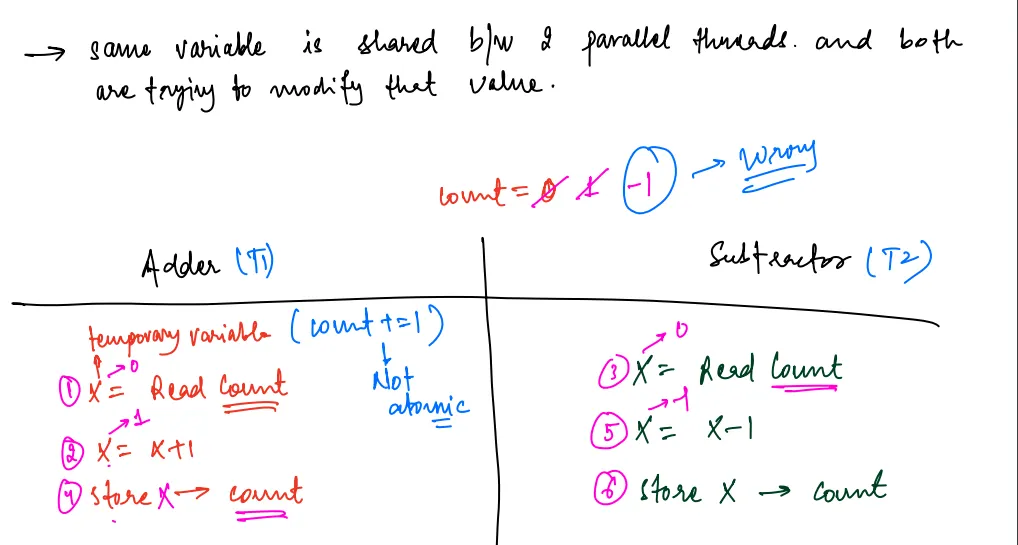 → same variable is shared b/w 2 parallel threads. and both
are trying to modify that value.
count = 0 1 -1 → Wrong
Adder (T1)
Subtractor (T2)
temporary variable (count += 1)
Not
atomic
① X = Read Count
→ 0
② X = X+1
→ 1
④ store X → count
③ X = Read Count
→ 0
⑤ X = X-1
→ -1
⑥ store X → count